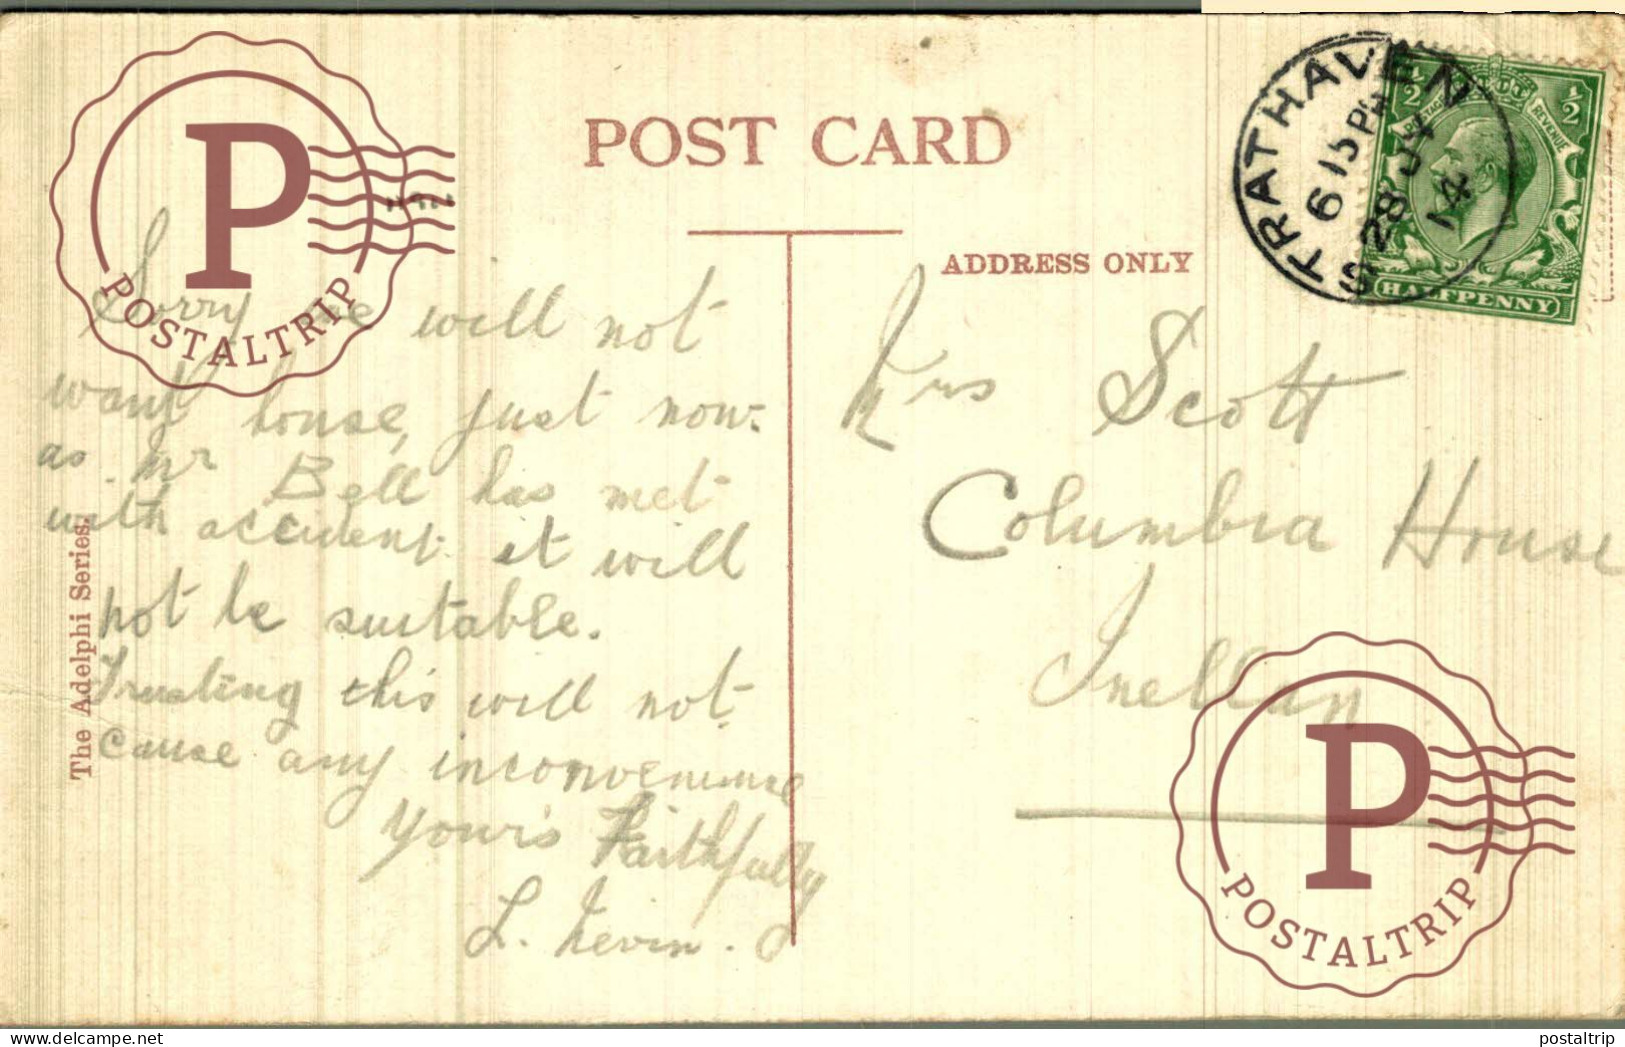 POST CARD
ADDRESS ONLY
STRATHAVEN
6 15 PM
28 JY
14
POSTAGE
REVENUE
½
½
HALFPENNY
Sorry we will not
want house, just now.
as Mr Bell has met
with accident it will
not be suitable.
Trusting this will not
cause any inconvenience
Your's Faithfully
L. Nevin.
Mrs Scott
Columbia House
Inellan
The Adelphi Series.
P
POSTALTRIP
P
POSTALTRIP
postaltrip